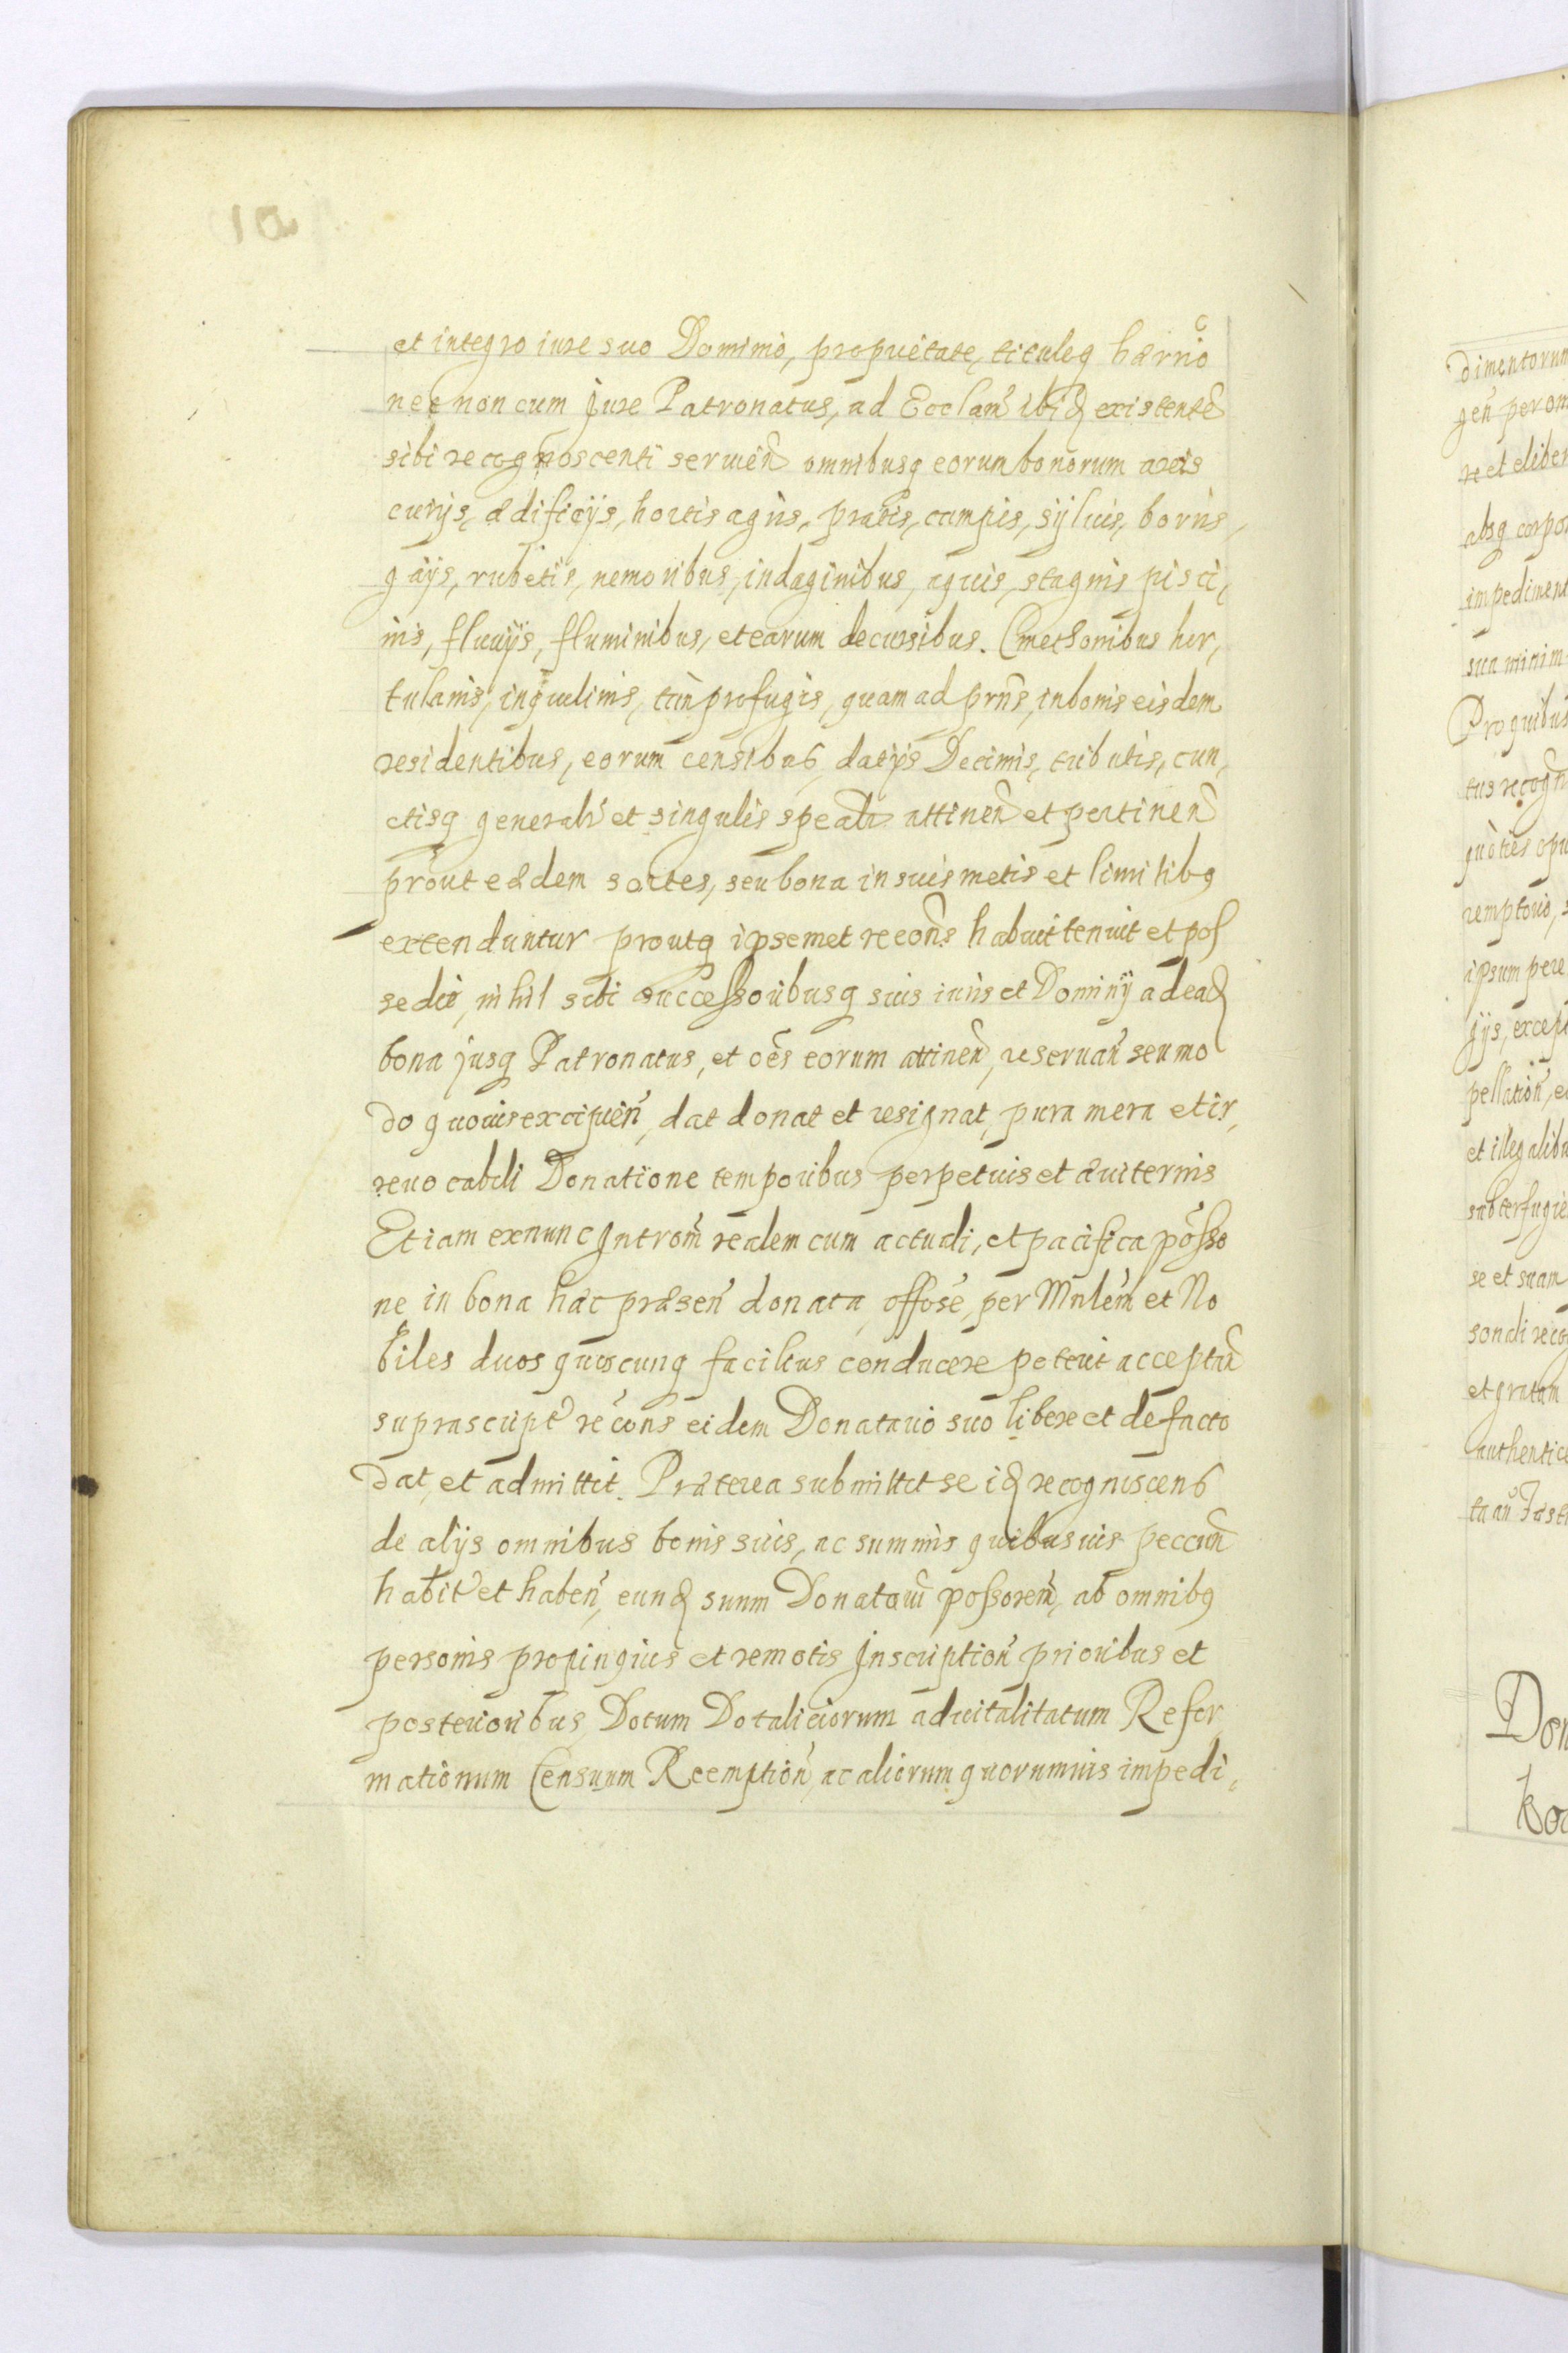 et integro iure suo Dominio, proprietate, tituloq hærrio
nec non cum Jure Patronatus, ad Ecclam ibiq existentē
sibi recognoscenti servien̄ omnibusq eorum bonorum areis
curijs, ædificijs, hortis agris, pratis, campis, sylvis, borris,
gaijs, rubetis, nemoribus, indaginibus, aquis, stagnis pisci,
nis, fluvijs, fluminibus, et earum decursibus. Cmethonibus hor,
tulanis, inquilinis, tam profugis, quam ad prns, in bonis eisdem
residentibus, eorum censibus, datijs Decimis, tributis, cun,
ctisq generalr et singulis spealr attinen̄ et pertinen̄
prout eædem sortes, seu bona in suis metis et limitibq
extenduntur proutq ipsemet recons habuit tenuit et pos
sedit, nihil sibi successoribusq suis iuris et Dominij ad eaq
bona jusq Patronatus, et oēs eorum attinen̄, reservan̄ seu mo
do quovis excipien̄, dat donat et resignat, pura mera et ir,
revocabili Donatione temporibus perpetuis et æviternis
Etiam exnunc Introm̄ realem cum actuali, et pacifica posso
ne in bona hæc præsen̄ donata, offose, per Mnlem et No
biles duos quoscunq facilius conducere poterit acceptan̄
suprascript recons eidem Donatario suo libere et de facto
dat, et admittit. Præterea submittit se iq recognoscens
de alijs omnibus bonis suis, ac summis quibusvis peccun̄
habit et haben̄, eunq suum Donatariū possorem̄, ab omnibq
personis propinquis et remotis Inscription̄ prioribus et
posterioribus, Dotum Dotaliciorum advitalitatum Refor
mationum Censuum Reemption̄ ac aliorum quorumvis impedi,
dimentorum
gen̄ per om
re et eliber
absq corpor
impediment
sua minim
Pro quibus
tus recogn
quoties opu
remptorio, s
ipsum pere
gijs, excep
pellation̄, e
et illegalibu
subterfugie
se et suam
sondi reco
et gratam
authentice